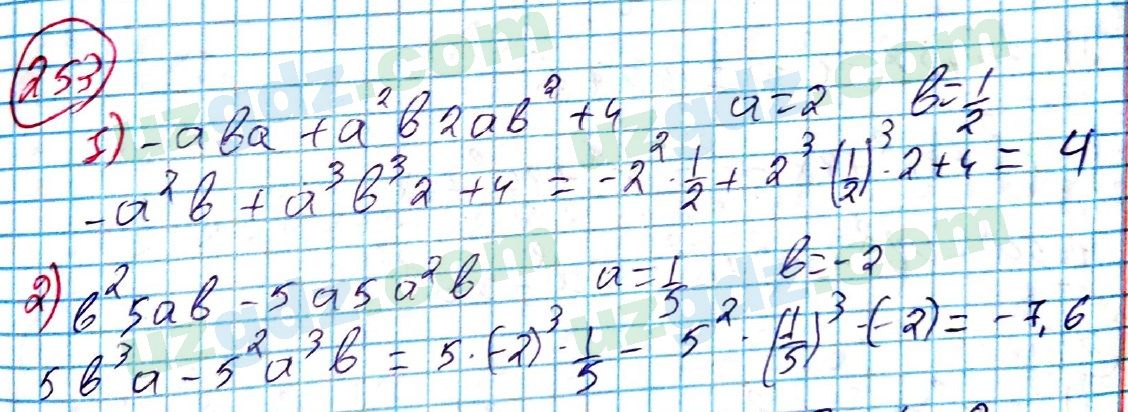 253
1) -aba + a²b2ab² + 4   a = 2   b = 1/2
-a²b + a³b³2 + 4 = -2² · 1/2 + 2³ · (1/2)³ · 2 + 4 = 4
2) b²5ab - 5a5a²b   a = 1/5   b = -2
5b³a - 5²a³b = 5 · (-2)³ · 1/5 - 5² · (1/5)³ · (-2) = -7,6
uzgdz.com